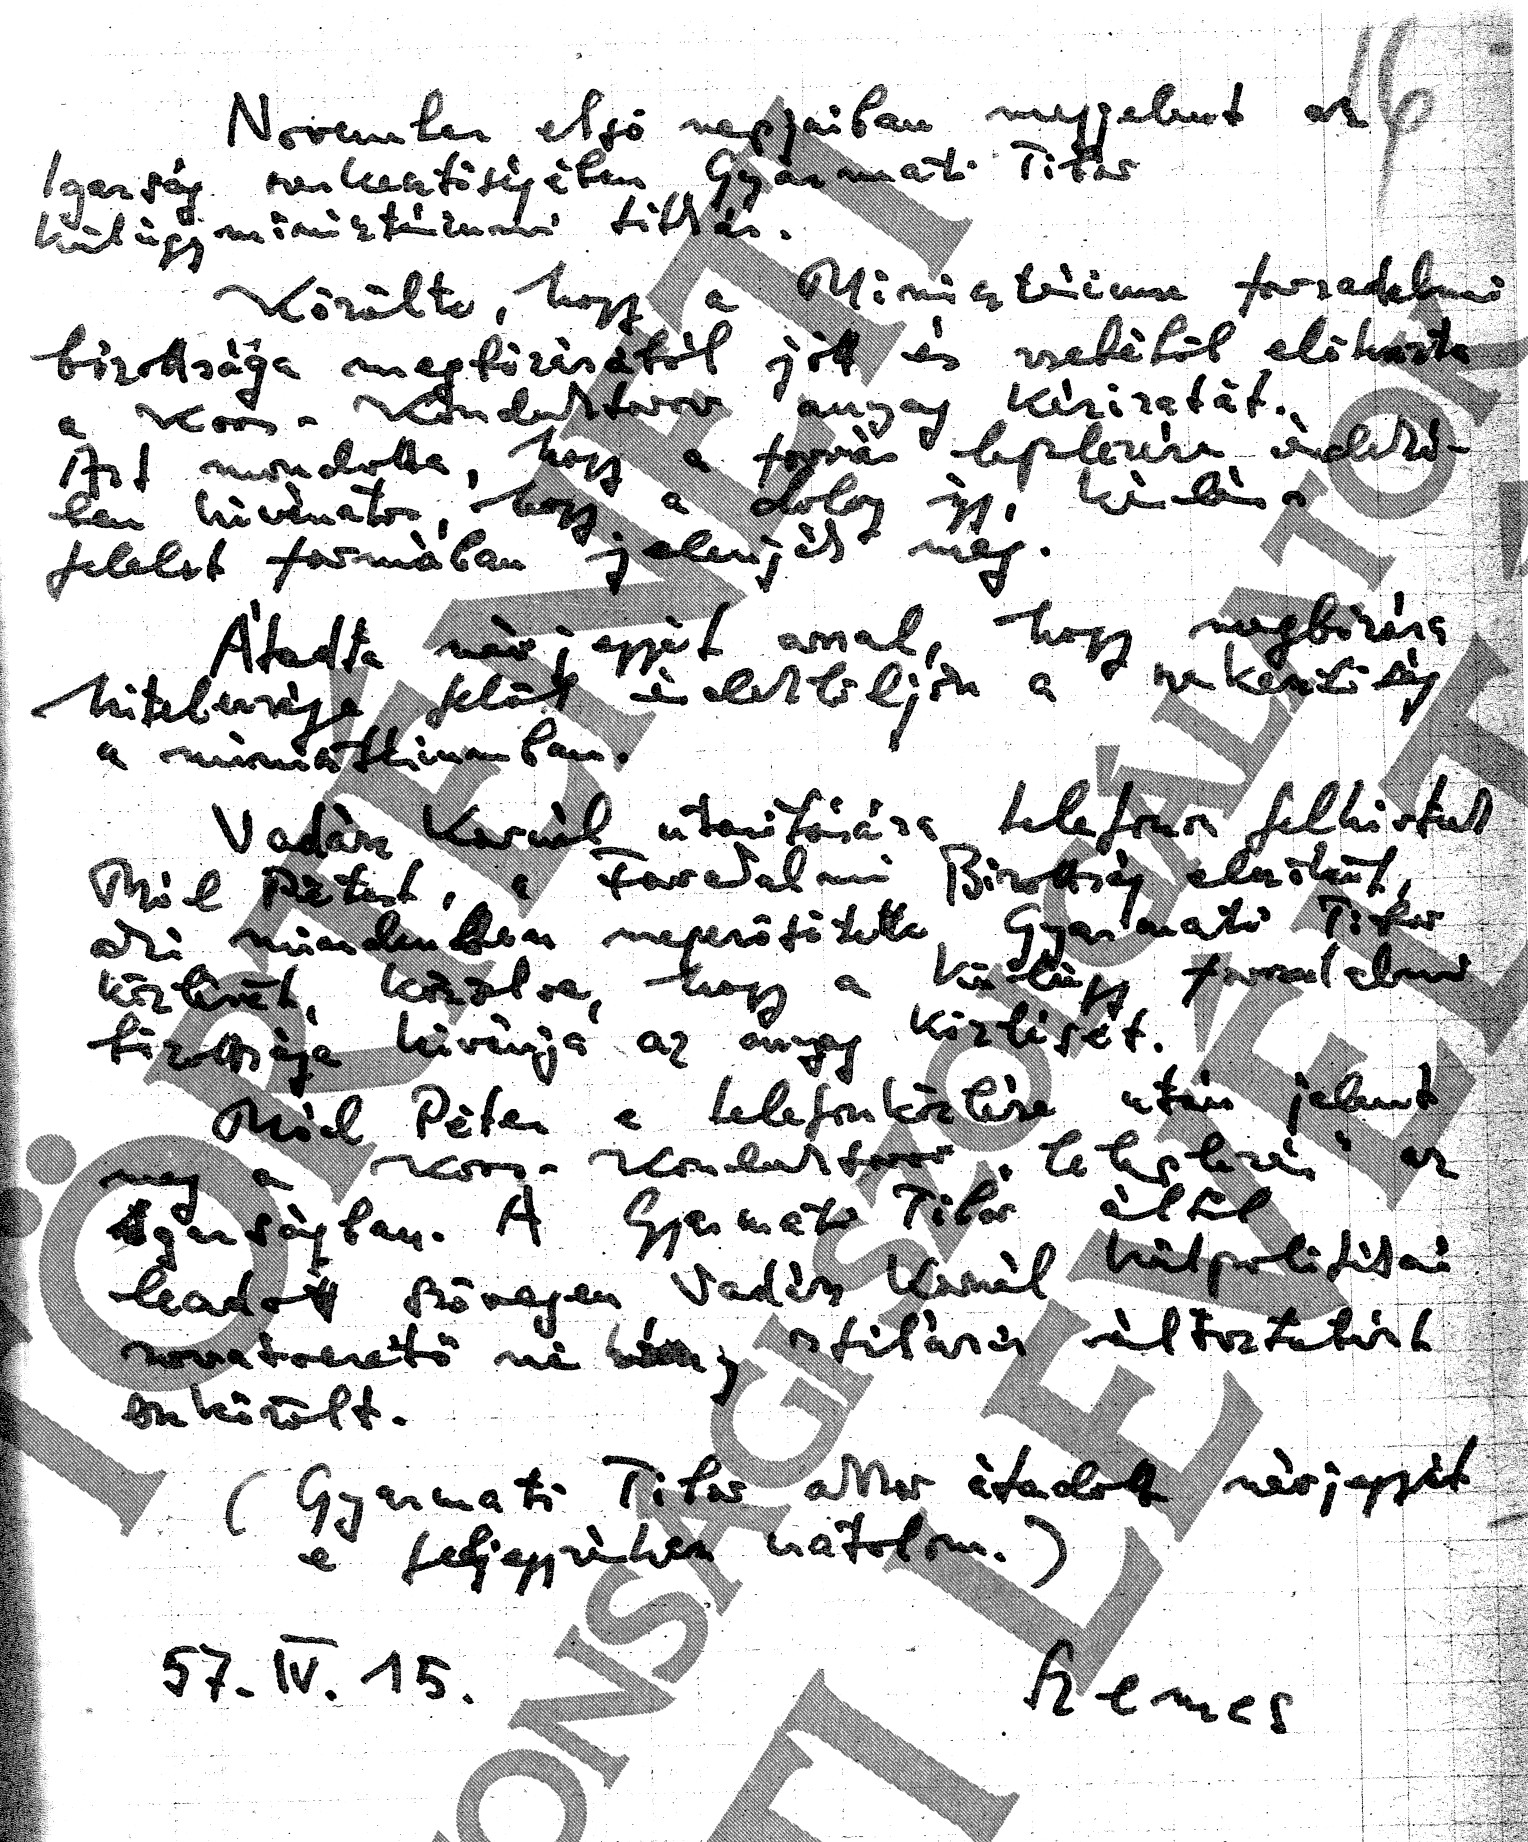 16
November első napjaiban megjelent az
Igazság szerkesztőségében Gyarmati Tibor
külügyminisztériumi titkár.
Közölte, hogy a Minisztérium forradalmi
bizottsága megbízásából jött és zsebéből előhúzta
a Koos-Konduktorov anyag kéziratát.
Azt mondotta, hogy a forrás leplezése érdeké-
ben kívánatos, hogy a dolog így, kérdés
felelet formában jelenjék meg.
Átadta névjegyét azzal, hogy megbízása
hitelessége felől érdeklődjön a szerkesztőség
a minisztériumban.
Vadász Kornél utasítására telefonon felhívtuk
Mód Pétert, a Forradalmi Bizottság elnökét,
aki mindenben megerősítette Gyarmati Tibor
közlését, közölve, hogy a Külügy forradalmi
bizottsága kívánja az anyag közlését.
Mód Péter e telefonközlése után jelent
meg a Koos-Konduktorov „leleplezés" az
Igazságban. A Gyarmati Tibor által
leadott szövegen Vadász Kornél külpolitikai
rovatvezető néhány stiláris változtatást
eszközölt.
(Gyarmati Tibor akkor átadott névjegyét
e feljegyzéshez csatolom.)
57. IV. 15.
Szemes
TÖRTÉNETI
LEVÉLTÁRA